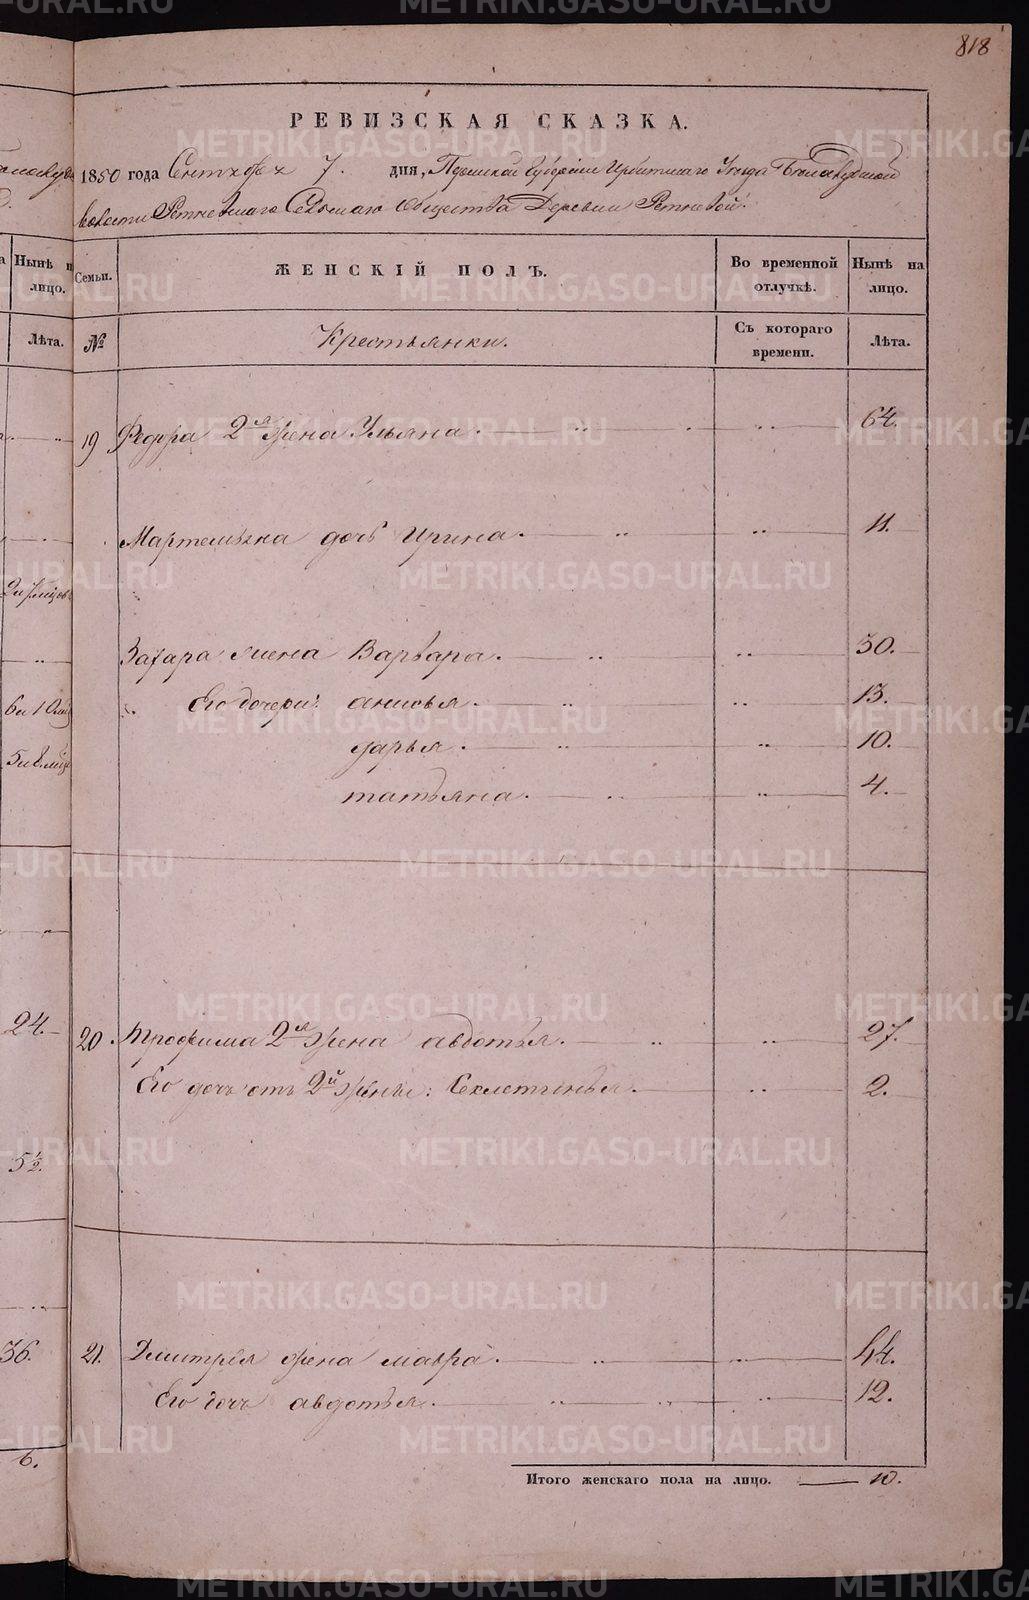 818
РЕВИЗСКАЯ СКАЗКА.
1850 года Сентября 7. дня, Пермской Губернiи Ирбитскаго Уѣзда Бѣлослудской
волости Ретневскаго Сельскаго Общества Деревни Ретневой.
Нынѣ
лицо.
Лѣта.
Семьи.
ЖЕНСКІЙ ПОЛЪ.
Во временной
отлучкѣ.
Нынѣ на
лицо.
№
Крестьянки.
Съ котораго
времени.
Лѣта.
19 Федора 2я жена Ульяна. 64.
Мартемьяна дочь Ирина. 11.
Захара жена Варвара. 30.
Его дочери: анисья. 13.
дарья. 10.
татьяна. 4.
24.
20. Трофима 2я жена авдотья. 27.
Его дочь отъ 2й жены: Секлетинья. 2.
5½.
36.
21. Дмитрея жена мавра. 44.
Его дочь авдотья. 12.
6.
Итого женскаго пола на лицо. 10.
METRIKI.GASO-URAL.RU